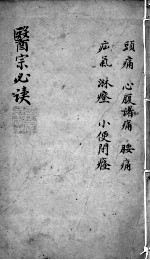 頭痛 心腹諸痛 腰痛
疝氣 淋癃 小便閉癃
醫宗必讀